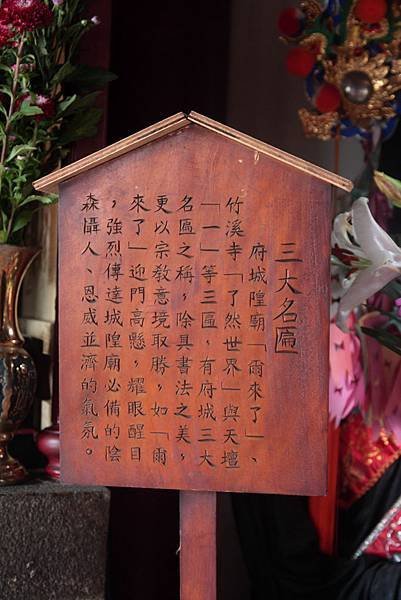 三大名匾
府城隍廟「爾來了」、
竹溪寺「了然世界」與天壇
「一」等三匾，有府城三大
名匾之稱，除具書法之美，
更以宗教意境取勝，如「爾
來了」迎門高懸，耀眼醒目
，強烈傳達城隍廟必備的陰
森懾人、恩威並濟的氣氛。